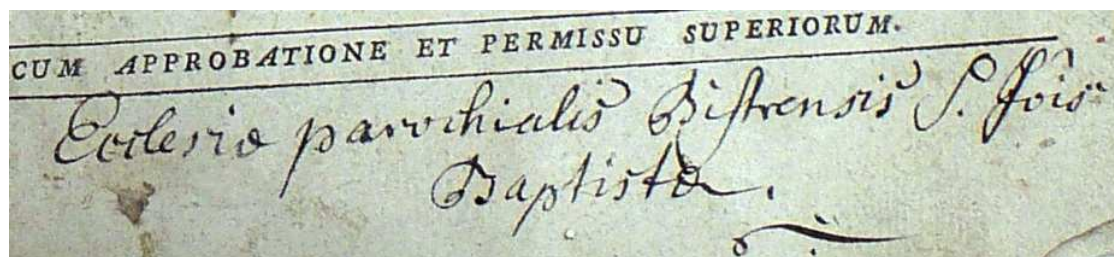 CUM APPROBATIONE ET PERMISSU SUPERIORUM.
Ecclesiæ parochialis Bistrensis S. Jois
Baptistæ.